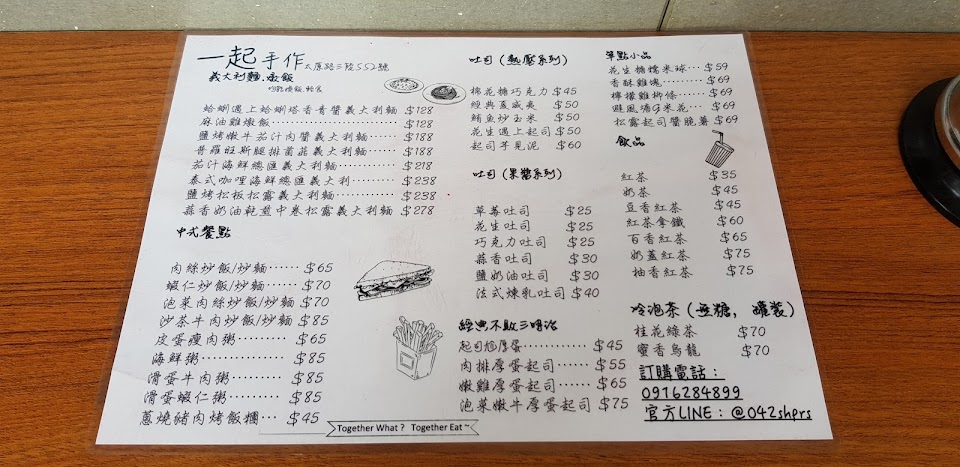 一起手作 太原路三段552號
義大利麵.燉飯
蛤蜊遇上蛤蜊塔香青醬義大利麵 $128
麻油雞燉飯 $128
鹽烤嫩牛茄汁肉醬義大利麵 $188
普羅旺斯腿排菌菇義大利麵 $188
茄汁海鮮總匯義大利麵 $218
泰式咖哩海鮮總匯義大利麵 $238
鹽烤松板松露義大利麵 $238
蒜香奶油乾煎中卷松露義大利麵 $278
中式餐點
肉絲炒飯/炒麵 $65
蝦仁炒飯/炒麵 $70
泡菜肉絲炒飯/炒麵 $70
沙茶牛肉炒飯/炒麵 $85
皮蛋瘦肉粥 $65
海鮮粥 $85
滑蛋牛肉粥 $85
滑蛋蝦仁粥 $85
蔥燒豬肉烤飯糰 $45
吐司(熱壓系列)
棉花糖巧克力 $45
經典夏威夷 $50
鮪魚炒玉米 $50
花生遇上起司 $50
起司芋見泥 $60
吐司(果醬系列)
草莓吐司 $25
花生吐司 $25
巧克力吐司 $25
蒜香吐司 $30
鹽奶油吐司 $30
法式煉乳吐司 $40
經典不敗三明治
起司尬厚蛋 $45
肉排厚蛋起司 $55
嫩雞厚蛋起司 $65
泡菜嫩牛厚蛋起司 $75
單點小品
花生糖糯米球 $59
香酥雞塊 $69
檸檬雞柳條 $69
避風港G米花 $69
松露起司醬脆薯 $69
飲品
紅茶 $35
奶茶 $45
豆香紅茶 $45
紅茶拿鐵 $60
百香紅茶 $65
奶蓋紅茶 $75
柚香紅茶 $75
冷泡茶(無糖, 罐裝)
桂花綠茶 $70
蜜香烏龍 $70
訂購電話:
0976284899
官方LINE:@042shprs
Together What? Together Eat~